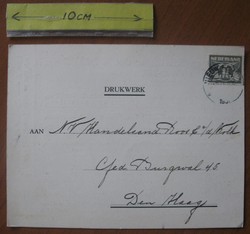 10CM
NEDERLAND
DRUKWERK
AAN N.V. Handelsond. Door C. v/d
Ged Burgwal 45
Den Haag